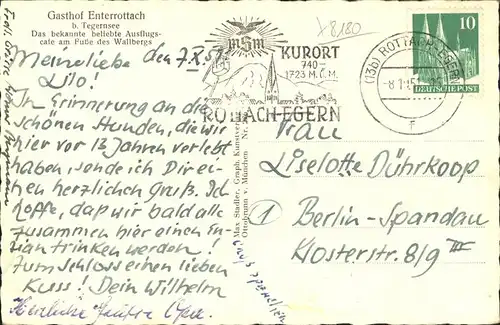 Gasthof Enterrottach
b. Tegernsee
Das bekannte beliebte Ausflugs-
cafe am Fuße des Wallbergs
den 7.X.51
Meine liebe
Lilo!
In Erinnerung an die
schönen Stunden, die wir
hier vor 13 Jahren verlebt
haben, sende ich Dir ei-
nen herzlichen Gruß. Ich
hoffe, daß wir bald alle
zusammen hier einen En-
zian trinken werden!
Zum Schloss einen lieben
Kuss! Dein Wilhelm
Herzliche
Max Stadler, Graph. Kunstverlag
Ottobrunn v. München Nr.
x8180
KURORT
740-
1723 M.Ü.M.
ROTTACH-EGERN
(13b) ROTTACH-EGERN
10
DEUTSCHE POST
Frau
Liselotte Dührkoop
1 Berlin-Spandau
Klosterstr. 8/9 III